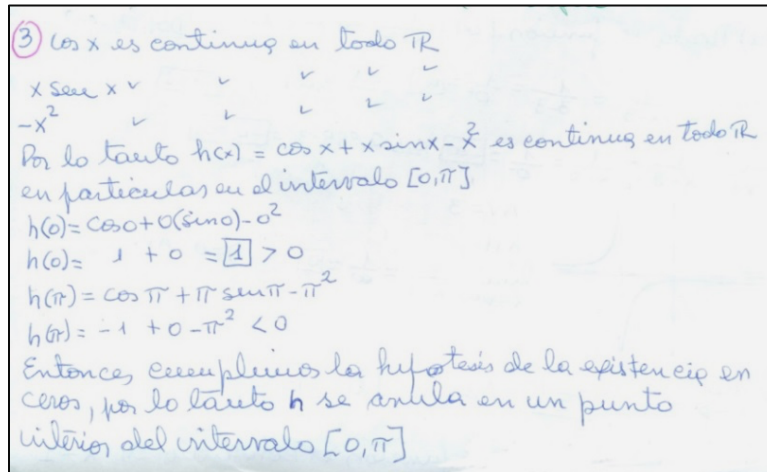 ③ cos x es continua en todo ℝ
x sen x ✓ ✓ ✓ ✓ ✓
-x² ✓ ✓ ✓ ✓ ✓
Por lo tanto h(x) = cos x + x sin x - x² es continua en todo ℝ
en particular en el intervalo [0,π]
h(0) = cos 0 + 0(sin 0) - 0²
h(0) = 1 + 0 = 1 > 0
h(π) = cos π + π sen π - π²
h(π) = -1 + 0 - π² < 0
Entonces cumplimos la hipotesis de la existencia en
ceros, por lo tanto h se anula en un punto
interior del intervalo [0,π]